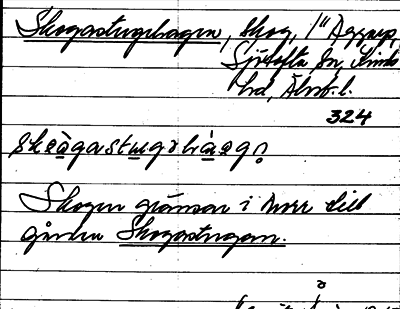 Skogastugehagen, skog, 1" Äggarp,
Sjötofta sn, Kinds
hd, Älvsb. l.
324
skoàgastugohàag
Skogen gränsar i norr till
gården Skogastugan.